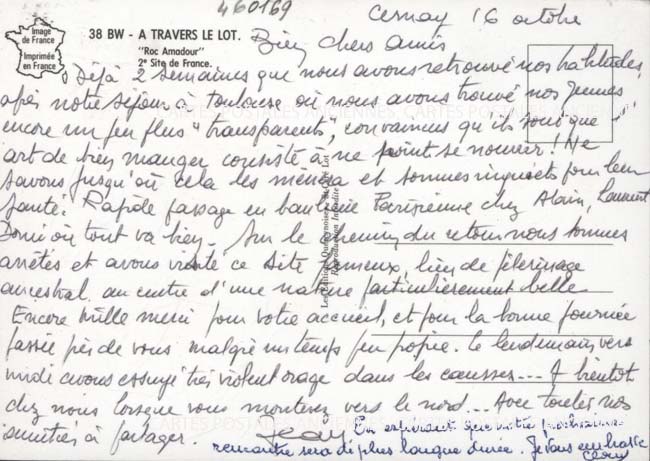 460169
Image
de France
Imprimée
en France
38 BW - A TRAVERS LE LOT.
"Roc Amadour"
2e Site de France.
Cernay 16 octobre
Bien chers amis
Déjà 2 semaines que nous avons retrouvé nos habitudes,
après notre séjour à toulouse où nous avons trouvé nos jeunes
encore un peu plus "transparents", convaincus qu'ils sont que
art de bien manger consiste à ne point se nourrir! Ne
savons jusqu'où cela les mènera et sommes inquiets pour leur
santé. Rapide passage en banlieue Parisienne chez Alain, Laurent
où tout va bien. Sur le chemin du retour nous sommes
arrêtés et avons visité ce site fameux, lieu de pèlerinage
ancestral au centre d'une nature particulièrement belle
Encore mille merci pour votre accueil, et pour la bonne journée
passée près de vous malgré un temps peu propice. le lendemain vers
midi avons essuyé très violent orage dans les causses... A bientôt
chez nous lorsque vous monterez vers le nord... Avec toutes nos
amitiés à partager. Jean
En espérant que notre prochaine
rencontre sera de plus longue durée. Je vous embrasse
Reproduction Interdite